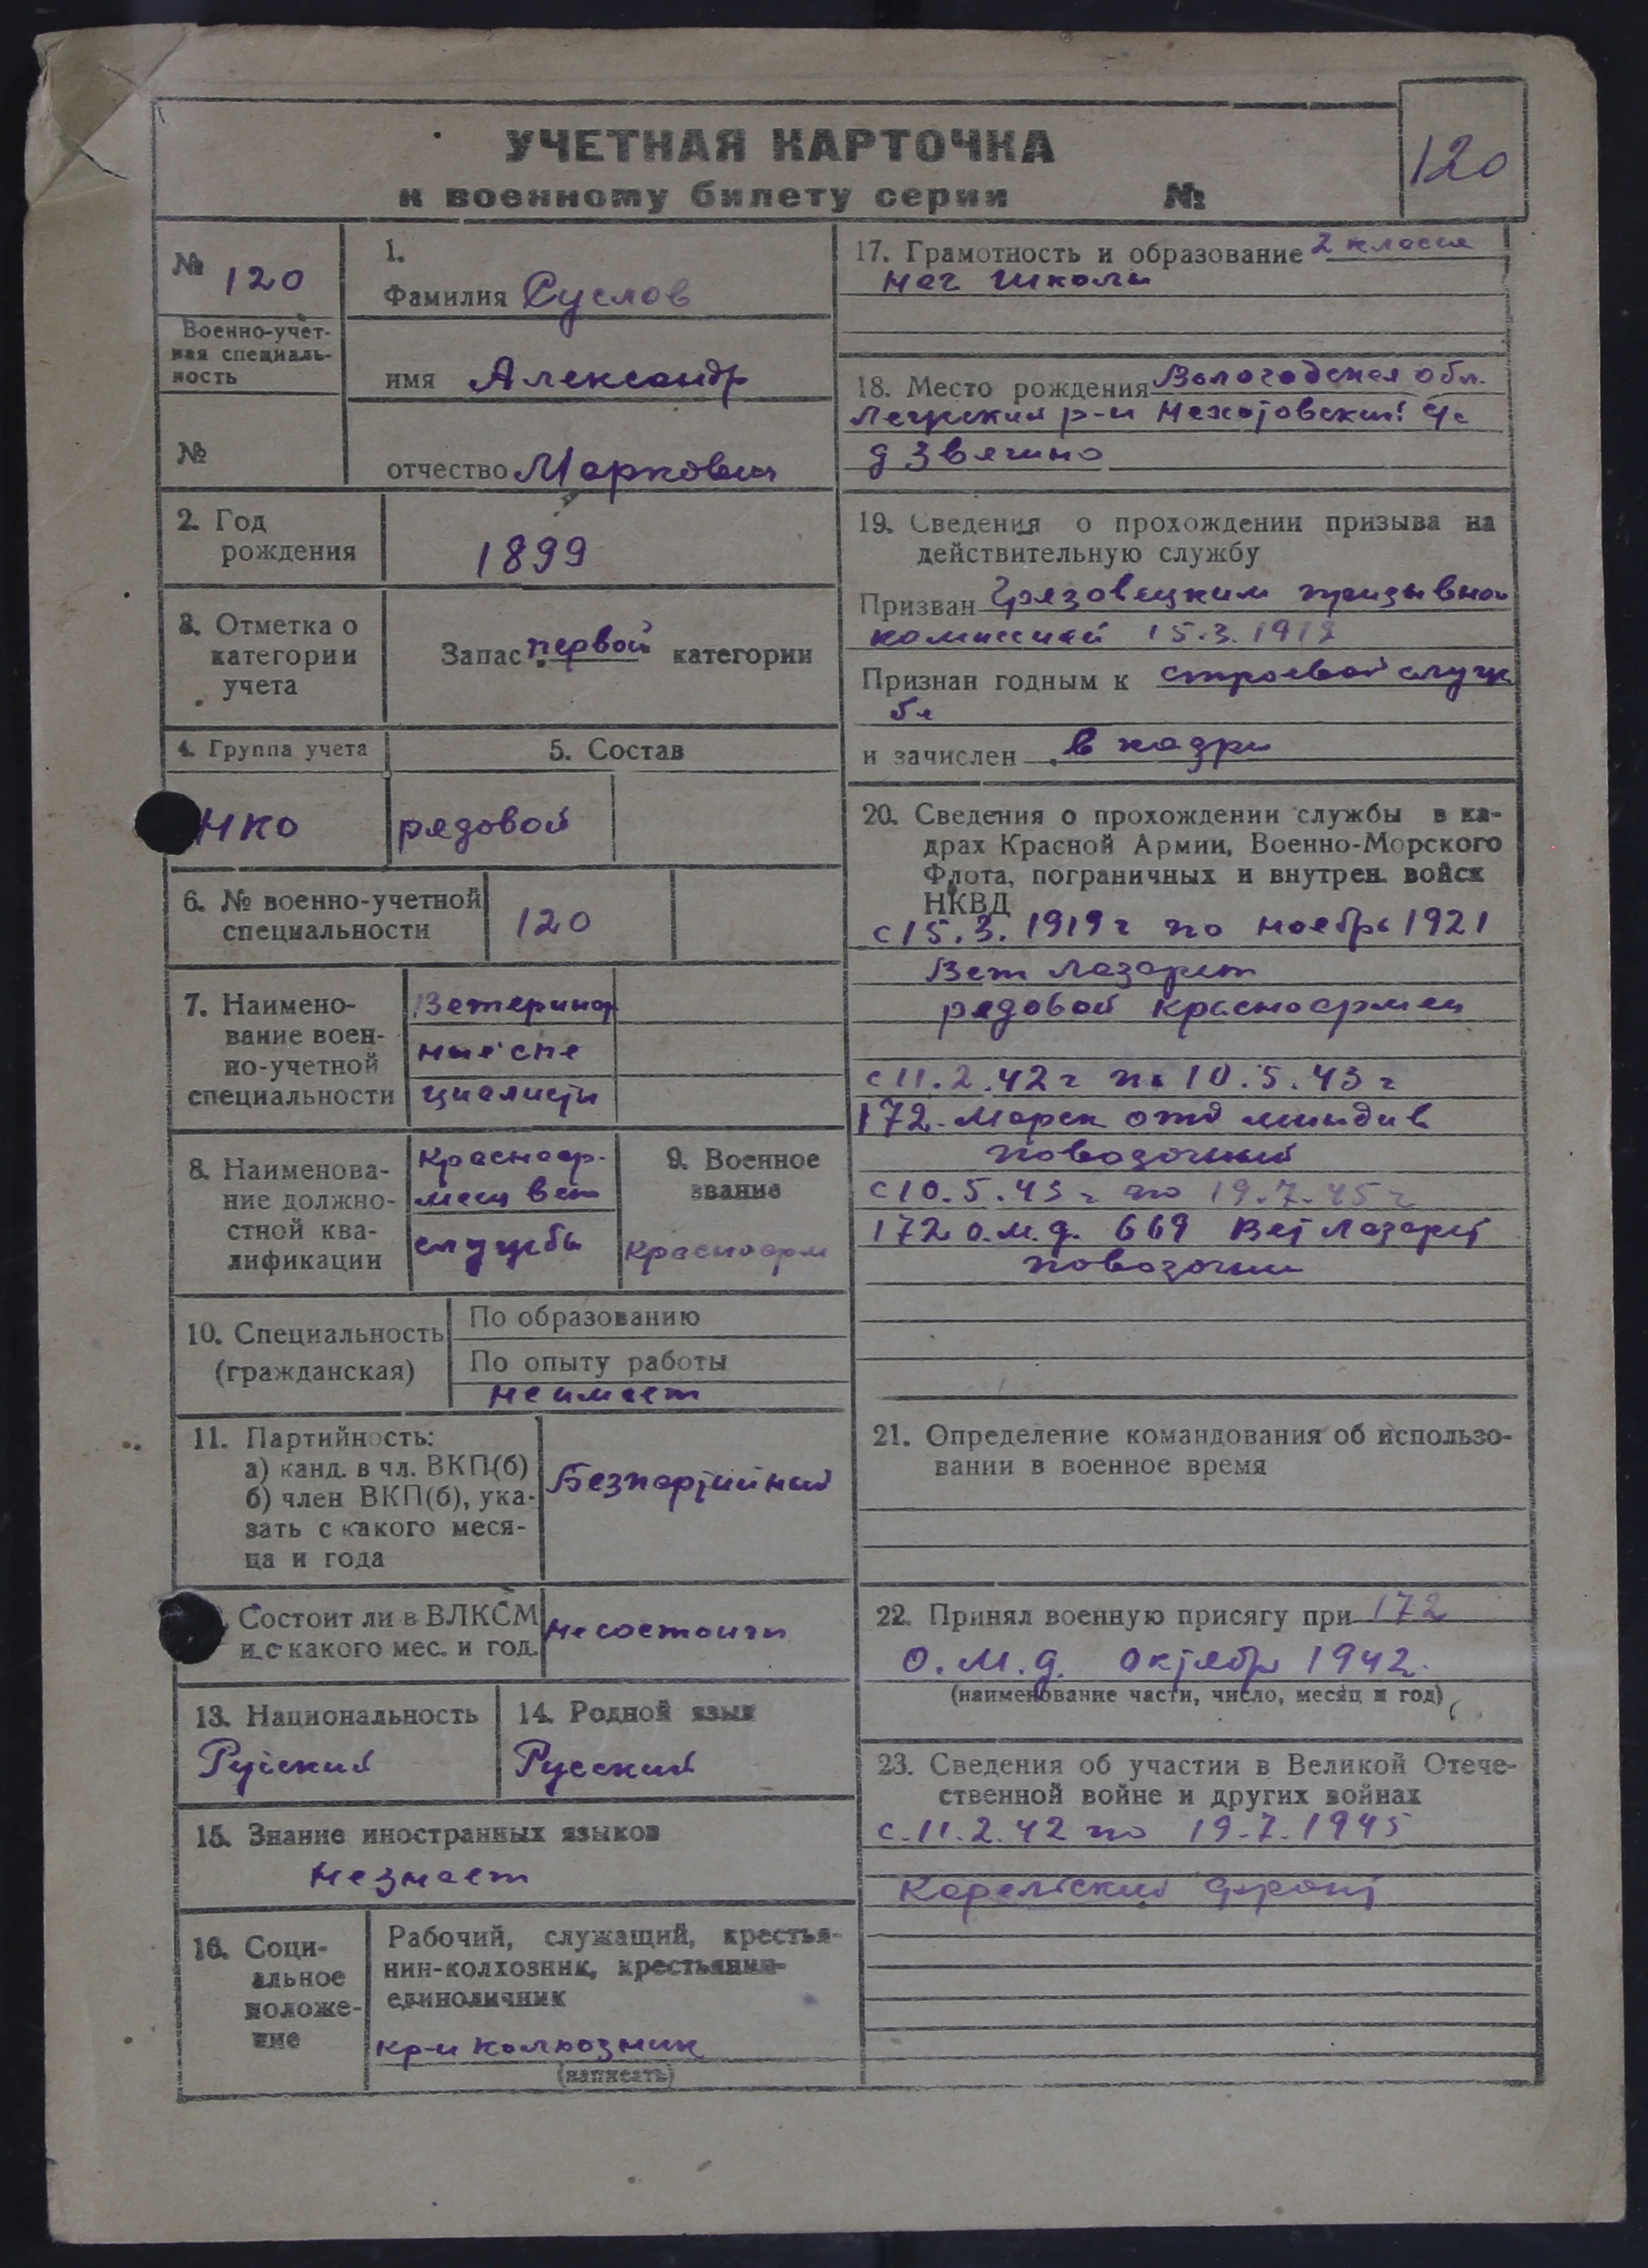 УЧЕТНАЯ КАРТОЧКА
к военному билету серии №
120
№ 120
Военно-учет-
ная специаль-
ность
№
1.
Фамилия Суслов
имя Александр
отчество Маркович
2. Год
рождения
1899
3. Отметка о
категории
учета
Запас первой категории
4. Группа учета
5. Состав
НКО
рядовой
6. № военно-учетной
специальности
120
7. Наимено-
вание воен-
но-учетной
специальности
Ветеринар
ные спе
циалисты
8. Наименова-
ние должно-
стной ква-
лификации
Красноар-
меец вет
службы
9. Военное
звание
Красноарм
10. Специальность
(гражданская)
По образованию
По опыту работы
не имеет
11. Партийность:
а) канд. в чл. ВКП(б)
б) член ВКП(б), ука-
зать с какого меся-
ца и года
Безпартийный
Состоит ли в ВЛКСМ
и с какого мес. и год.
не состоит
13. Национальность
Русский
14. Родной язык
Русский
15. Знание иностранных языков
не знает
16. Соци-
альное
положе-
ние
Рабочий, служащий, крестья-
нин-колхозник, крестьянин-
единоличник
кр-н колхозник
(написать)
17. Грамотность и образование 2 класса
нач школы
18. Место рождения Вологодская обл.
р-н с/с
д Звягино
19. Сведения о прохождении призыва на
действительную службу
Призван Грязовецким призывной
комиссией 15.3.1919
Признан годным к строевой служ
бе
и зачислен в кадры
20. Сведения о прохождении службы в ка-
драх Красной Армии, Военно-Морского
Флота, пограничных и внутрен. войск
НКВД
с 15.3.1919 г по ноябрь 1921
Вет Лазарет
рядовой красноармеец
с 11.2.42 г по 10.5.43 г
172 Морск отд див
повозочный
с 10.5.43 г по 19.7.45 г
172 о.м.д. 669 Вет Лазарет
повозочный
21. Определение командования об использо-
вании в военное время
22. Принял военную присягу при 172
О.М.д. октябрь 1942.
(наименование части, число, месяц и год)
23. Сведения об участии в Великой Отече-
ственной войне и других войнах
с 11.2.42 по 19.7.1945
Карельский фронт